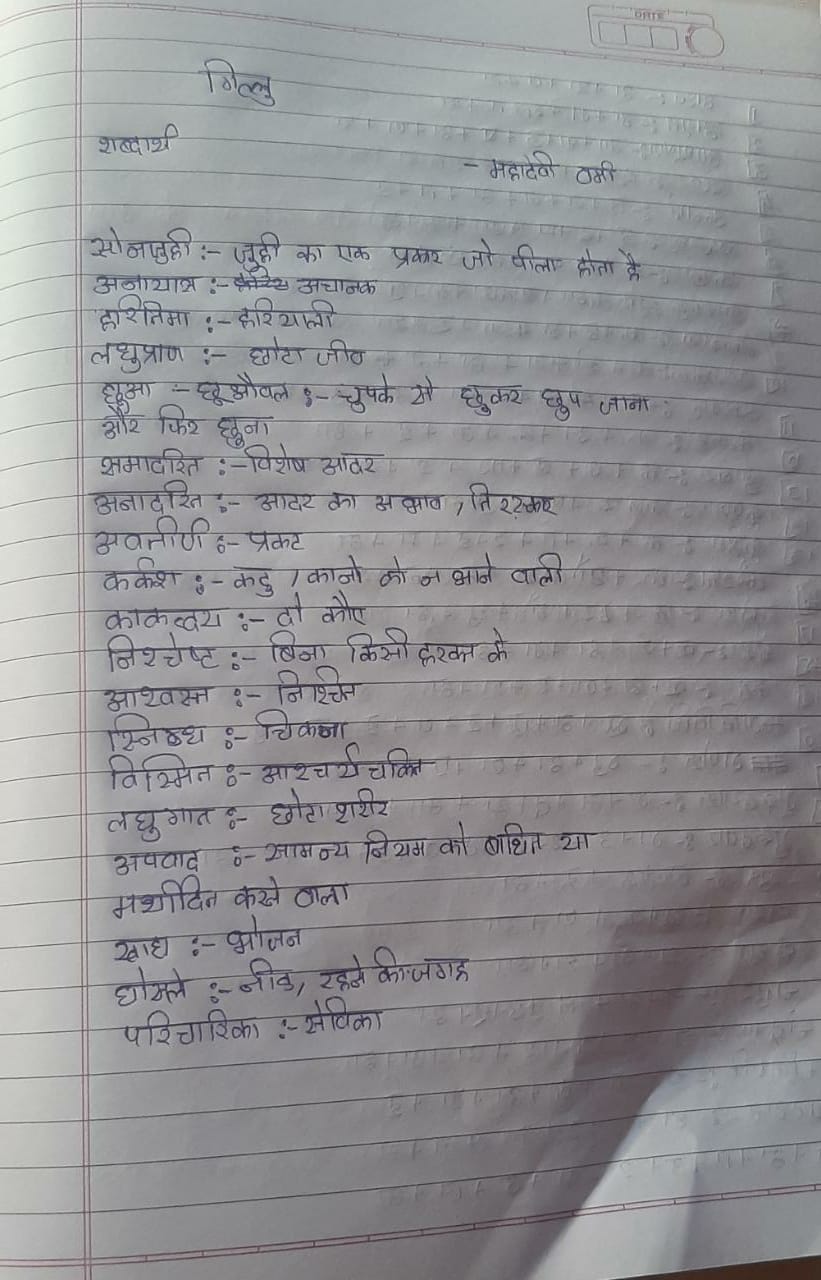 DATE
गिल्लु
शब्दार्थ
- महादेवी वर्मा
सोनजुही :- जुही का एक प्रकार जो पीला होता है
अनायास :- अचानक
हरितिमा :- हरियाली
लघुप्राण :- छोटा जीव
छुआ - छूऔवल :- चुपके से छुकर छुप जाना
और फिर छुना
समादरित :- विशेष आदर
अनादरित :- आदर का अभाव, तिरस्कार
अवतीर्ण :- प्रकट
कर्कश :- कटु, कानो को न भाने वाली
काकद्वय :- दो कौए
निश्चेष्ट :- बिना किसी हरकत के
आश्वस्त :- निश्चित
स्निग्ध :- चिकना
विस्मित :- आश्चर्यचकित
लघुगात :- छोटा शरीर
अपवाद :- सामन्य नियम को बाधित या
मर्यादित करने वाला
खाद्य :- भोजन
घोसले :- नीड, रहने की जगह
परिचारिका :- सेविका